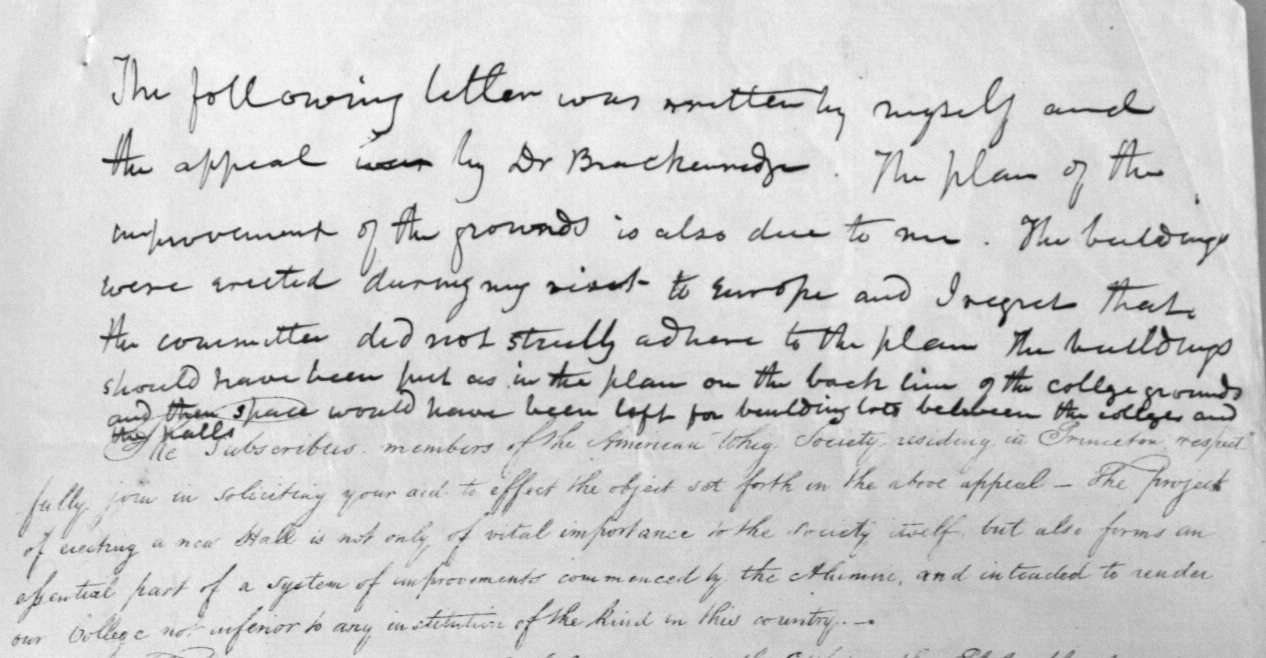 The following letter was written by myself and
the appeal was by Dr Brackenredge. The plan of the
improvement of the grounds is also due to me. The buildings
were erected during my visit to Europe and I regret that
the committee did not strictly adhere to the plan The buildings
should have been put as in the plan on the back line of the college grounds
and then space would have been left for building lots between the college and
the halls
The Subscribers members of the American Whig Society, residing in Princeton, respect
fully join in soliciting your aid to effect the object set forth in the above appeal — The project
of erecting a new Hall is not only of vital importance to the Society itself, but also forms an
essential part of a system of improvements commenced by the Alumni, and intended to render
our College not inferior to any institution of the kind in this country. —